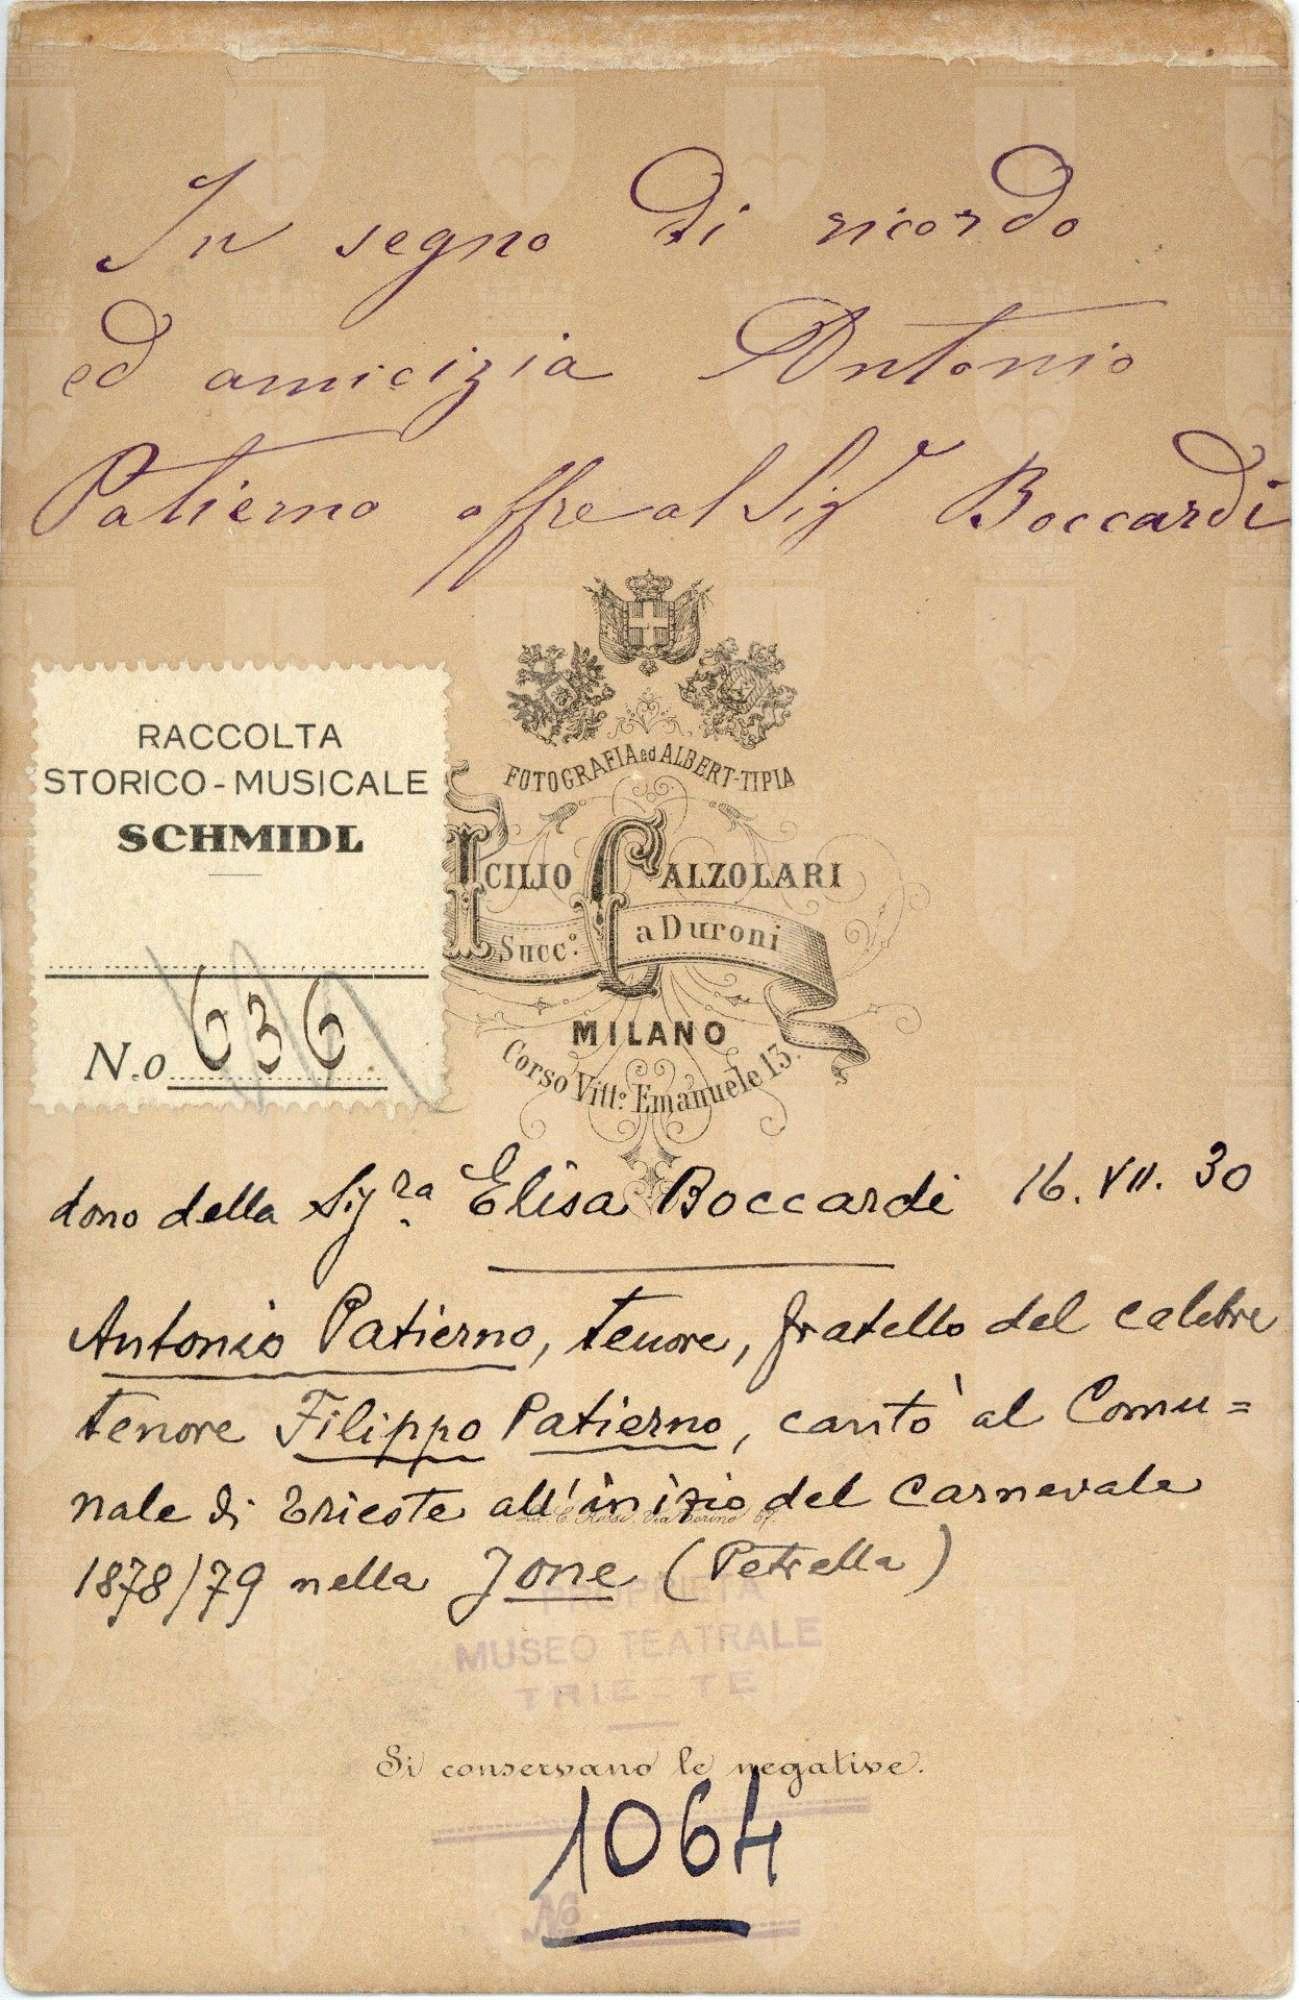 In segno di ricordo
ed amicizia Antonio
Patierno offre al Sigr Boccardi
FOTOGRAFIA ed ALBERT-TIPIA
RACCOLTA
STORICO-MUSICALE
SCHMIDL
ICILIO CALZOLARI
Succ.o a Duroni
N.o 636
MILANO
Corso Vitt.o Emanuele 13.
dono della Sig.ra Elisa Boccardi 16. VII. 30
Antonio Patierno, tenore, fratello del celebre
tenore Filippo Patierno, cantò al Comu=
nale di Trieste all'inizio del Carnevale
1878/79 nella Jone (Petrella)
PROPRIETÀ
MUSEO TEATRALE
TRIESTE
Si conservano le negative.
1064
No